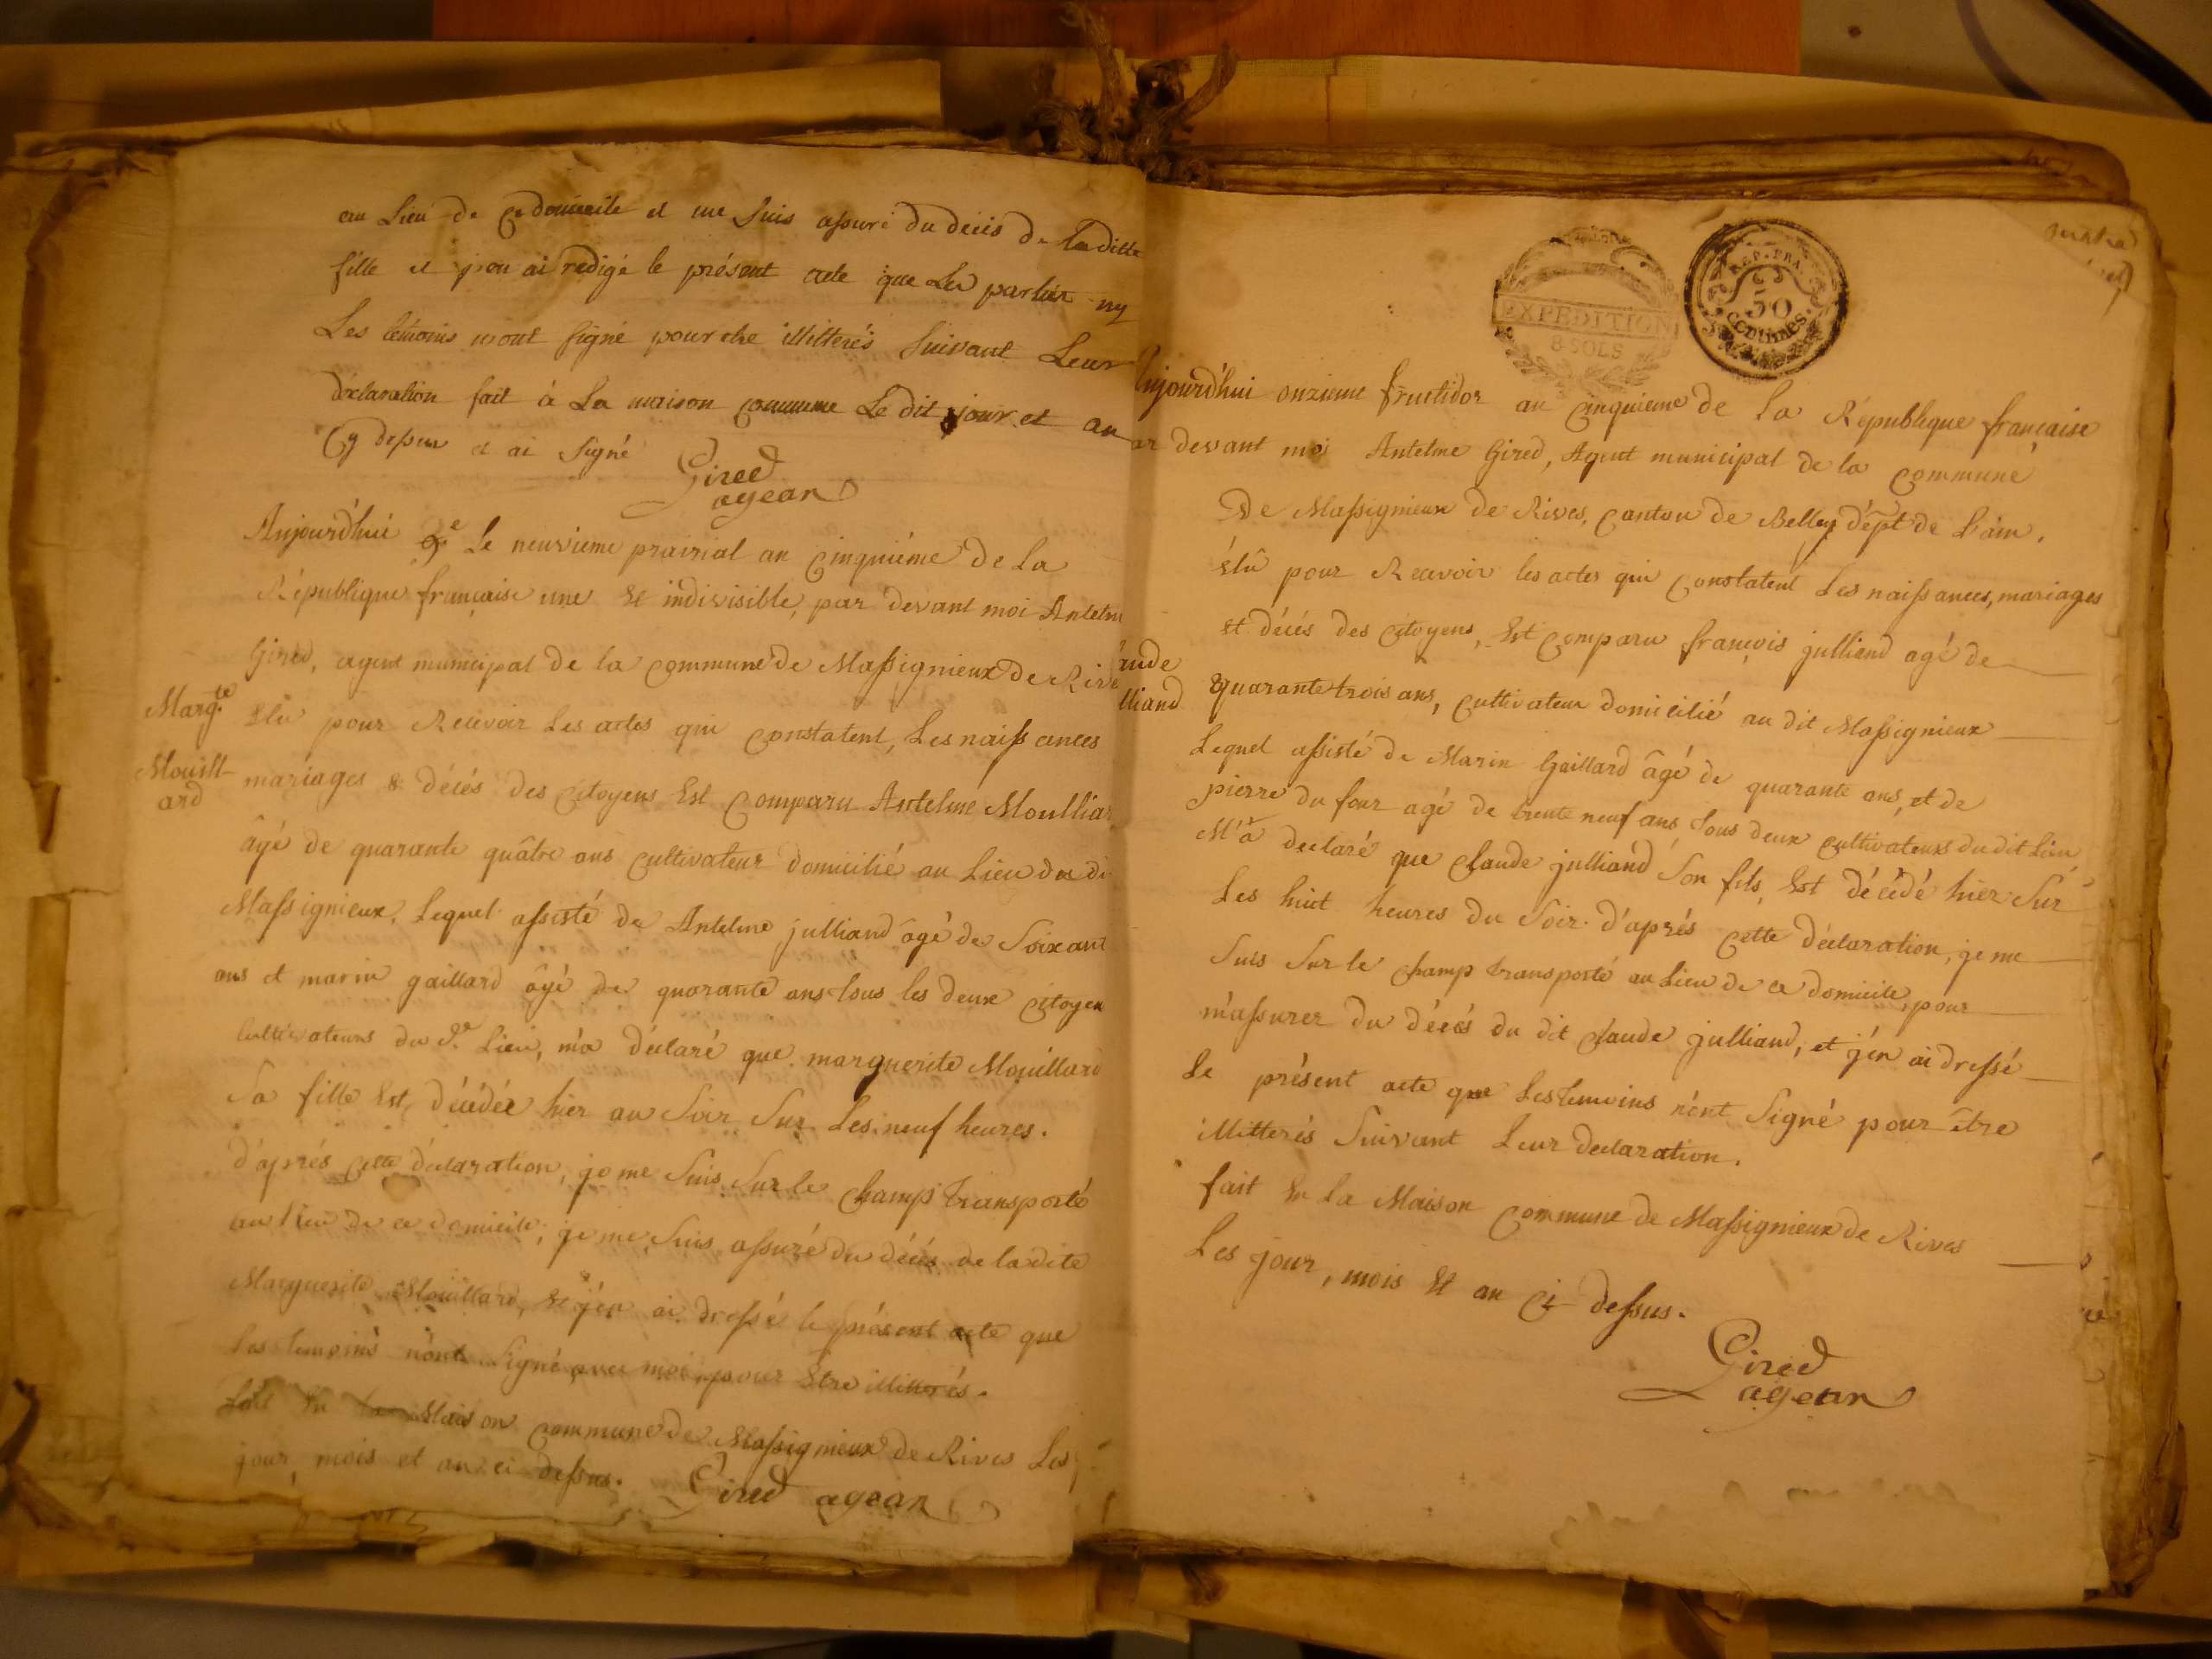 au Lieu de ce domicile et me suis assuré du décés de laditte
fille et j'en ai redigé le présent acte que les parties ny
Les témoins n'ont signé pour etre illitterés suivant Leur
déclaration fait à La maison commune Le dit jour et an
cy dessus et ai signé
Gired
agean
Aujourd'hui Le neuvieme prairial an cinquiéme de La
République française une et indivisible, par devant moi Antelm
Gired, agent municipal de la commune de Massignieux de Rive
Marg.te
élû pour Recevoir Les actes qui constatent, Les naissances
Mouill-
ard
mariages & décés des citoyens Est comparu Antelme Moulliar
âgé de quarante quâtre ans cultivateur domicilié au Lieu du di
Massignieux, Lequel assisté de Antelme julliand âgé de soixant
ans et marin gaillard âgé de quarante ans tous les deux citoyen
cultivateurs du d.t Lieu, m'a déclaré que marguerite Mouillard
Sa fille Est, décédée hier au soir sur Les neuf heures.
d'aprés cette déclaration, je me suis sur le champ transporté
au Lieu de ce domicile, je me suis assuré du décés de la dite
Marguerite Mouillard, et j'en ai dressé le présent acte que
Les temoins n'ont signé avec moi pour être illitterés.
fait En la Maison commune de Massignieux de Rives Les
jour, mois et an ci dessus.
Gired agean
EXPEDITION
8 SOLS
REP. FRA.
50
CENTIMES.
Aujourd'hui onzieme fructidor an cinquieme de la République française
ar devant moi Antelme Gired, Agent municipal de la commune
de Massignieux de Rives, canton de Belley dépt de L'ain,
élû pour Recevoir les actes qui constatent Les naissances, mariages
et décés des citoyens, Est comparu françois julliand agé de
aude
lliand
quarante trois ans, cultivateur domicilié au dit Massignieux
Lequel assisté de Marin Gaillard âgé de quarante ans, et de
pierre du four agé de trente neuf ans tous deux cultivateurs du dit Lieu
M'a declaré que claude julliand son fils, Est décédé hier sur
Les huit heures du soir. d'aprés cette déclaration, je me
suis sur le champ transporté au Lieu de ce domicile, pour
m'assurer du décés du dit claude julliand, et j'en ai dressé
Le présent acte que Les temoins n'ont signé pour être
illitterés suivant Leur declaration.
fait En la Maison commune de Massignieux de Rives
Les jour, mois Et an ci dessus.
Gired
agean